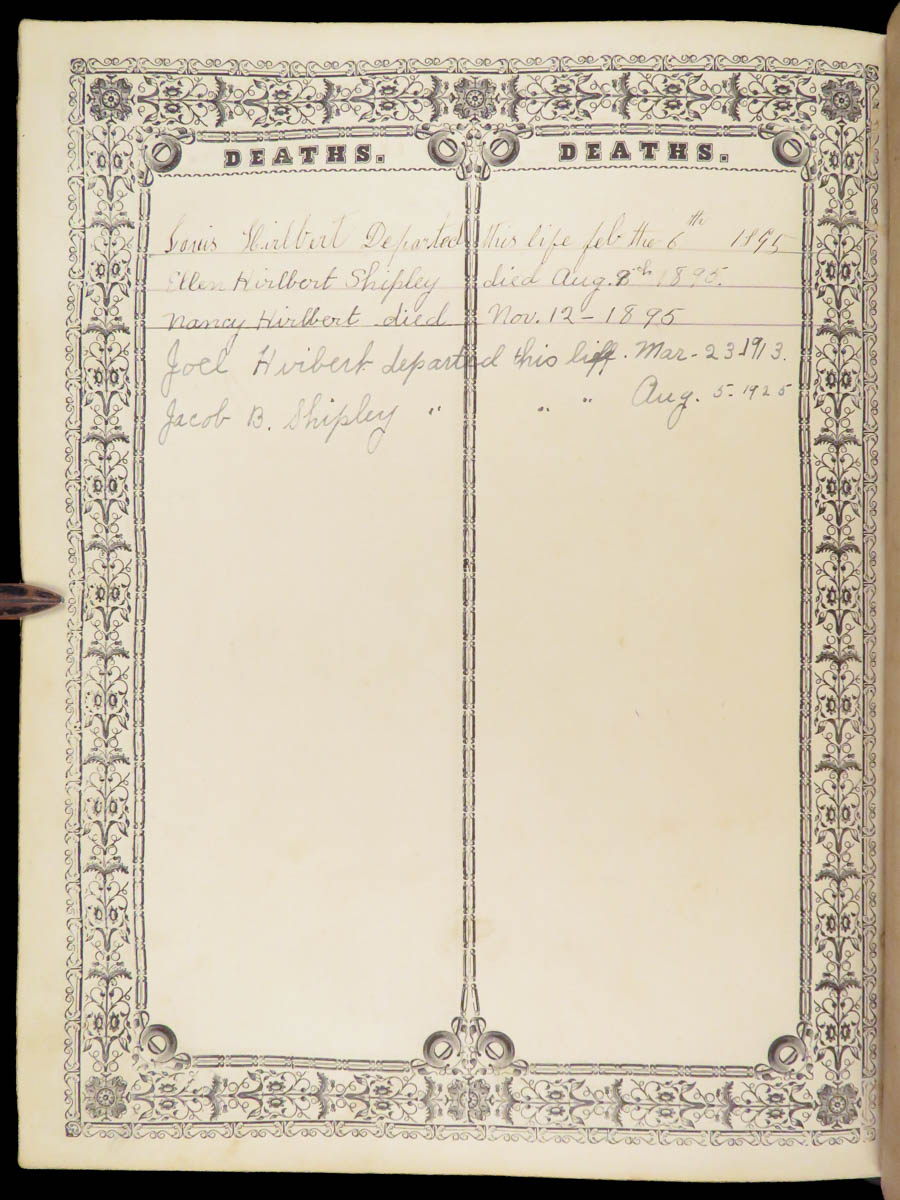 DEATHS. DEATHS.
Louis Hirlbert Departed this life feb the 6th 1895
Ellen Hirlbert Shipley died Aug. 8th 1895.
Nancy Hirlbert died Nov. 12 - 1895
Joel Hvibert departed this liff. Mar - 23 1913.
Jacob B. Shipley " " " Aug. 5. 1925